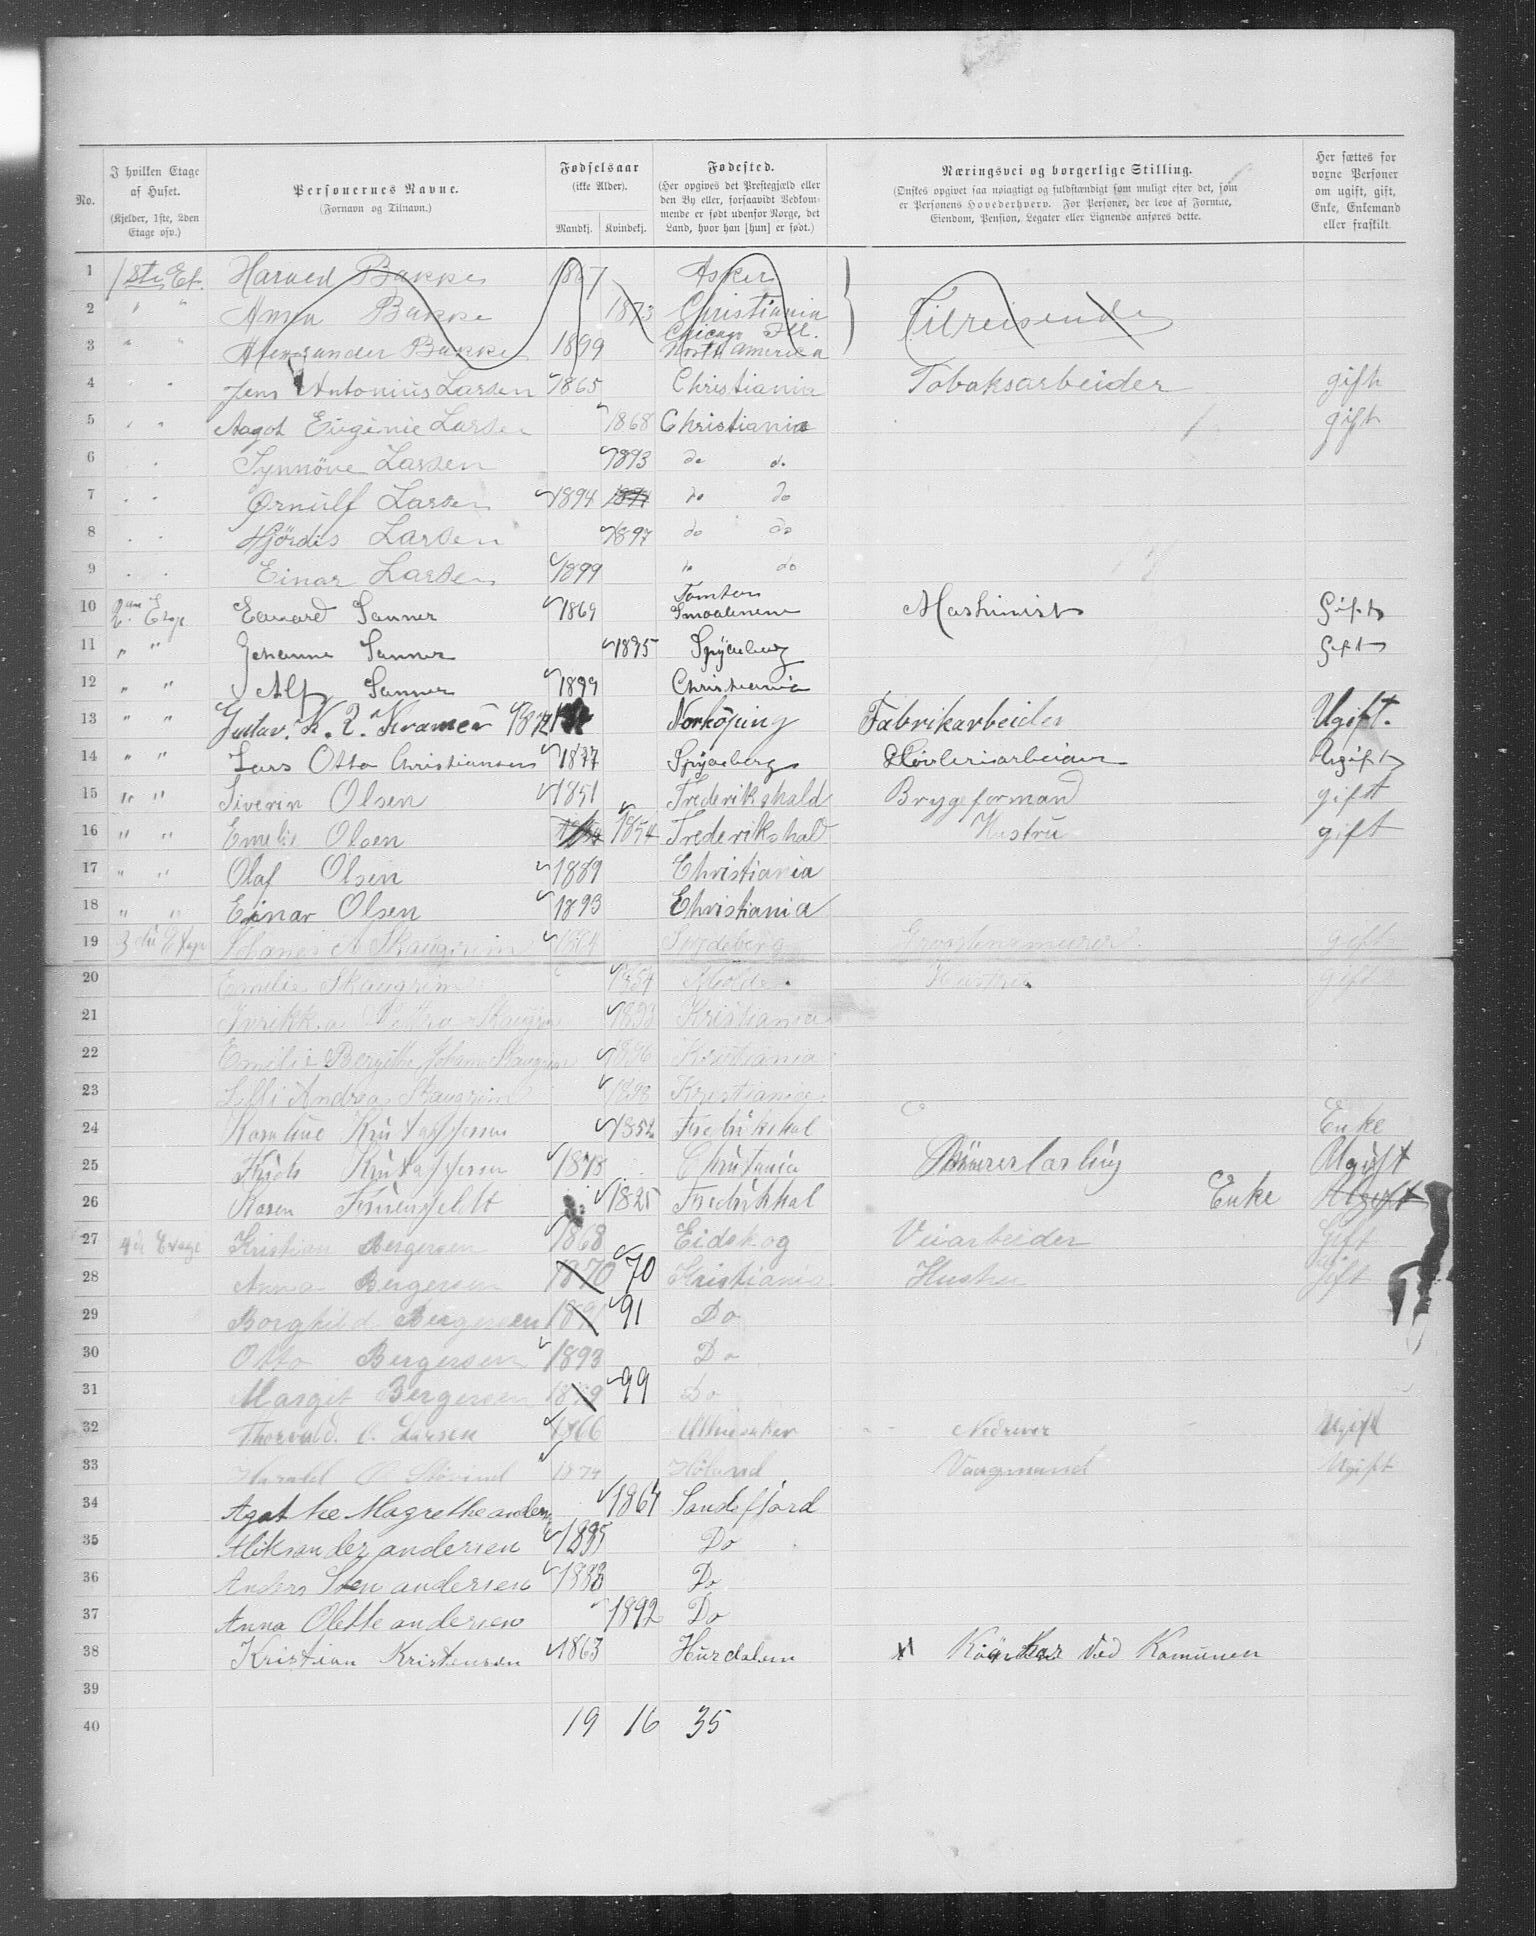 No. | I hvilken Etage af Huset. (Kjelder, 1ste, 2den Etage osv.) | Personernes Navne. (Fornavn og Tilnavn.) | Fødselsaar (ikke Alder). Mandkj. Kvindekj. | Fødested. (Her opgives det Prestegjæld eller den By eller, forsaavidt Vedkommende er født udenfor Norge, det Land, hvor han [hun] er født.) | Næringsvei og borgerlige Stilling. (Ønskes opgivet saa nøiagtigt og fuldstændigt som muligt efter det, som er Personens Hovederhverv. For Personer, der leve af Formue, Eiendom, Pension, Legater eller Lignende anføres dette. | Her sættes for voxne Personer om ugift, gift, Enke, Enkemand eller fraskilt.
1 1ste Et. Harved Bakke 1867 Asker
2 " " Anna Bakke 1873 Christiania Tilreisende
3 " " Alexander Bakke 1899 Chicago Ill. North America
4 " " Jens Antonius Larsen 1865 Christiania Tobaksarbeider gift
5 " " Aagot Eugenie Larsen 1868 Christiania gift
6 " " Synnöve Larsen 1893 do do
7 " " Ørnulf Larsen 1894 do do
8 " " Hjördis Larsen 1897 do do
9 " " Einar Larsen 1899 do do
10 2den Etage Edvard Sanner 1869 Tomten Smaalenene Maskinist Gift
11 " " Johanne Sanner 1895 Spydeberg Gift
12 " " Alf Sanner 1899 Christiania
13 " " Gustav. K. L. Kramer 1872 Norköping Fabrikarbeider Ugift.
14 " " Lars Otto Christiansen 1877 Spydeberg Høvleriarbeider Ugift
15 " " Siverin Olsen 1851 Frederikshald Bryggeformand gift
16 " " Emelie Olsen 1854 Frederikshald Hustru gift
17 " " Olaf Olsen 1889 Christiania
18 " " Einar Olsen 1893 Christiania
19 3die Etage Johanes A Skaugrim 1864 Spydeberg gift
20 Emelie Skaugrim 1854 Molde. Hustru. gift
21 Skaugrim 1893 Kristiania
22 Emelie Bergithe Johanne Skaugrim 1896 Kristiania
23 Lilli Andrea Skaugrim 1898 Kristiania
24 Karoline Kristoffersen 1852 Fredrikshal Enke
25 Kristoffersen 1878 Christania Murerlærling Ugift
26 Karen 1825 Fredrikhal Enke Ugift
27 4de Etage Kristian Bergersen 1868 Eidskog Veiarbeider Gift
28 Anna Bergersen 1870 70 Kristiania Hustru Gift
29 Borghild Bergersen 1891 91 Do
30 Otto Bergersen 1893 Do
31 Margit Bergersen 1899 99 Do
32 Thorvald. O. Larsen 1866 Ullinsaker Ugift
33 Harald O. 1874 Høland Vaagmand Ugift
34 Agathe Magrethe andersen 1864 Sandefjord
35 Aleksander andersen 1885 Do
36 Anders Sven andersen 1888 Do
37 Anna Olette andersen 1892 Do
38 Kristian Kristensen 1863 Hurdalem Ved Komunen
39
40 19 16 35